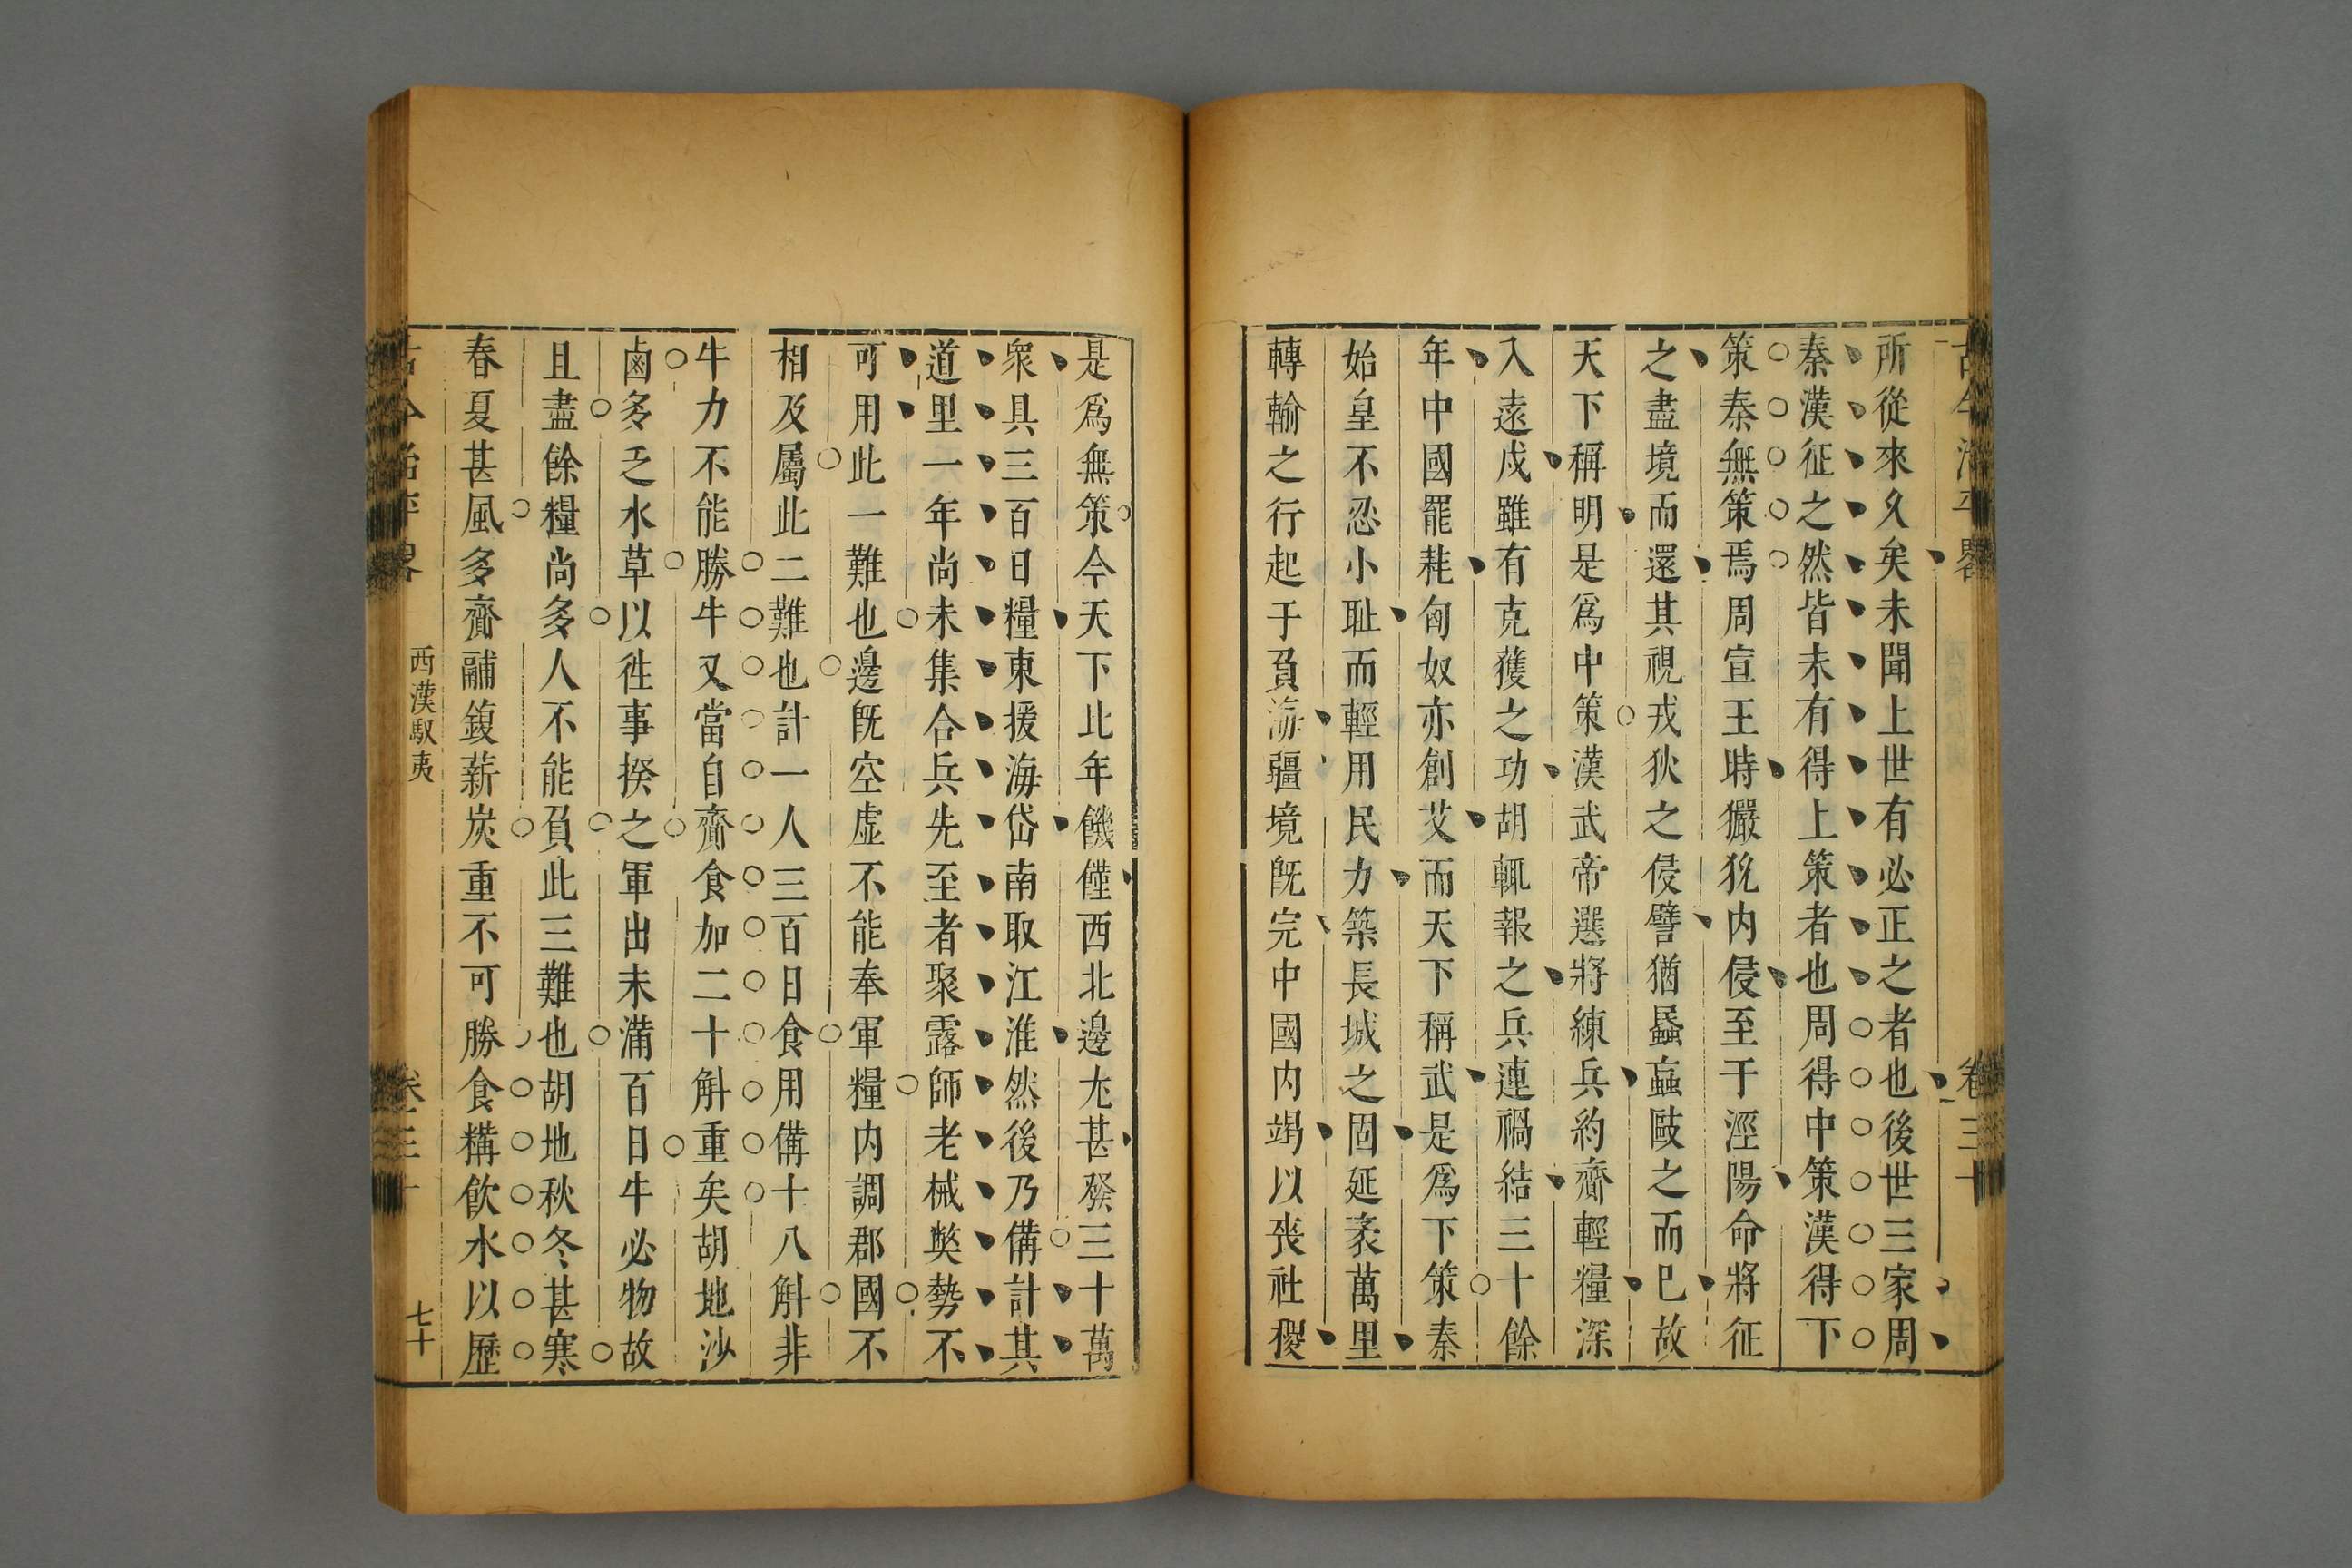 所從來久矣未聞上世有必正之者也後世三家周
秦漢征之然皆未有得上策者也周得中策漢得下
策秦無策焉周宣王時玁狁内侵至于涇陽命將征
之盡境而還其視戎狄之侵譬猶蟁蝱敺之而已故
天下稱明是爲中策漢武帝選將練兵約齎輕糧深
入逺戍雖有克獲之功胡輒報之兵連禍結三十餘
年中國罷耗匈奴亦創艾而天下稱武是爲下策秦
始皇不忍小耻而輕用民力築長城之固延袤萬里
轉輸之行起于負海疆境既完中國内竭以喪社稷
是爲無策今天下比年饑饉西北邊尤甚發三十萬
衆具三百日糧東援海岱南取江淮然後乃備計其
道里一年尚未集合兵先至者聚露師老械獘勢不
可用此一難也邊既空虛不能奉軍糧内調郡國不
相及屬此二難也計一人三百日食用備十八斛非
牛力不能勝牛又當自齎食加二十斛重矣胡地沙
鹵多乏水草以徃事揆之軍出未滿百日牛必物故
且盡餘糧尚多人不能負此三難也胡地秋冬甚寒
春夏甚風多齎鬴鍑薪炭重不可勝食糒飲水以歷
西漢馭夷
七十